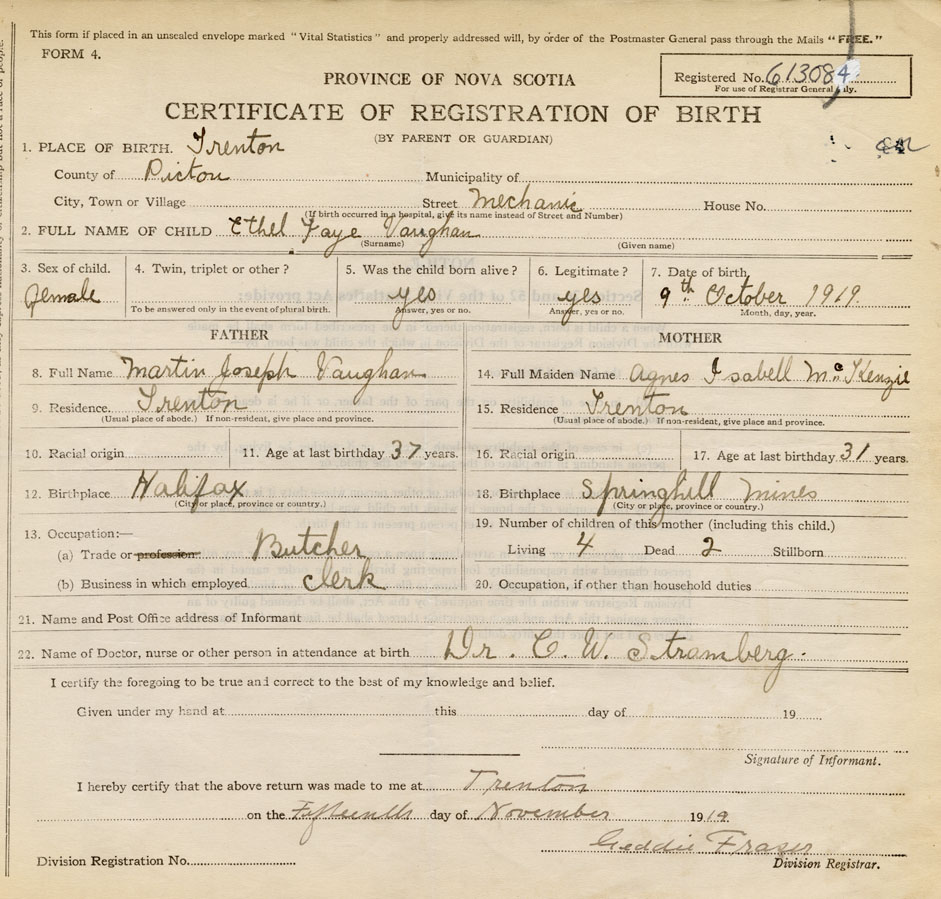 This form if placed in an unsealed envelope marked "Vital Statistics" and properly addressed will, by order of the Postmaster General pass through the Mails "FREE."
FORM 4.
PROVINCE OF NOVA SCOTIA
Registered No. 613084
For use of Registrar General only.
CERTIFICATE OF REGISTRATION OF BIRTH
(BY PARENT OR GUARDIAN)
1. PLACE OF BIRTH. Trenton
County of Pictou Municipality of
City, Town or Village Street Mechanic House No.
(If birth occurred in a hospital, give its name instead of Street and Number)
2. FULL NAME OF CHILD Ethel Faye Vaughan
(Surname) (Given name)
3. Sex of child. 4. Twin, triplet or other? 5. Was the child born alive? 6. Legitimate? 7. Date of birth
female yes yes 9th October 1919.
To be answered only in the event of plural birth. Answer, yes or no. Answer, yes or no. Month, day, year.
FATHER MOTHER
8. Full Name Martin Joseph Vaughan 14. Full Maiden Name Agnes Isabell McKenzie
9. Residence. Trenton 15. Residence Trenton
(Usual place of abode.) If non-resident, give place and province. (Usual place of abode.) If non-resident, give place and province.
10. Racial origin 11. Age at last birthday 37 years. 16. Racial origin 17. Age at last birthday 31 years.
12. Birthplace Halifax 18. Birthplace Springhill Mines
(City or place, province or country.) (City or place, province or country.)
13. Occupation:— 19. Number of children of this mother (including this child.)
(a) Trade or profession Butcher Living 4 Dead 2 Stillborn
(b) Business in which employed clerk 20. Occupation, if other than household duties
21. Name and Post Office address of Informant
22. Name of Doctor, nurse or other person in attendance at birth Dr. C. W. Stramberg.
I certify the foregoing to be true and correct to the best of my knowledge and belief.
Given under my hand at this day of 19
Signature of Informant.
I hereby certify that the above return was made to me at Trenton
on the Fifteenth day of November 1919.
Geddie Fraser
Division Registration No. Division Registrar.